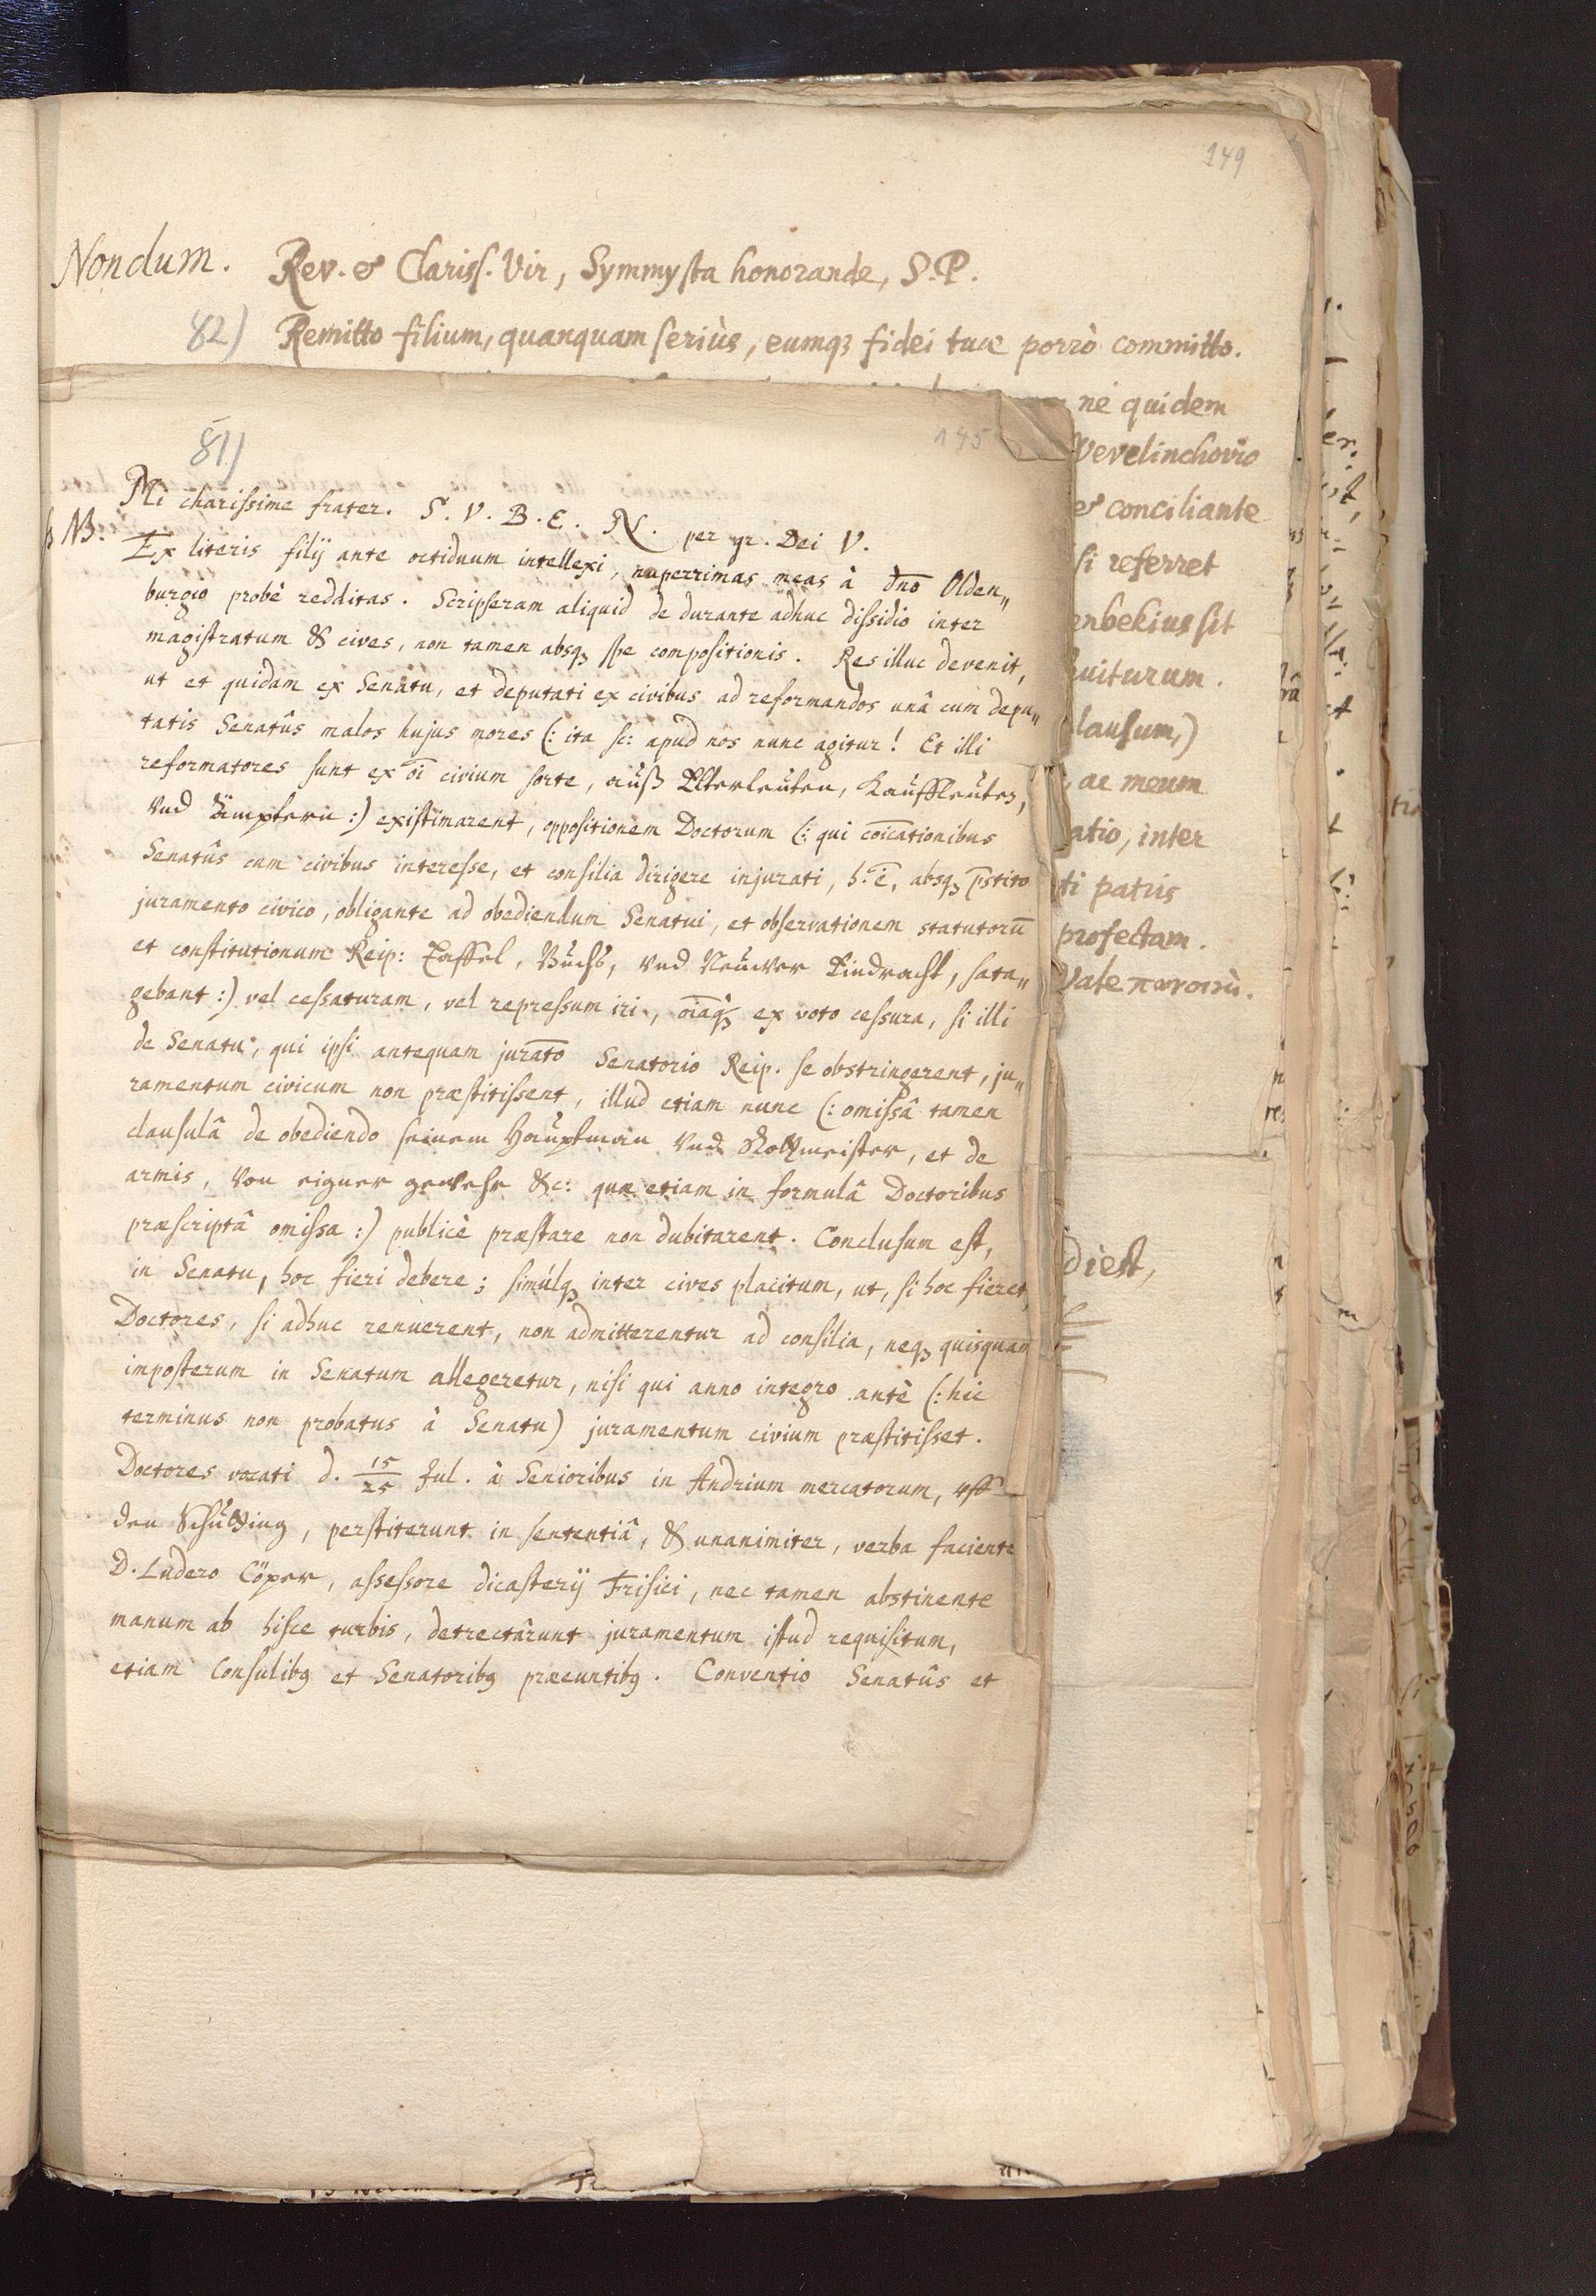 149
Nondum. Rev. & Clariss. Vir, Symmysta honorande, S.P.
82) Remitto filium, quanquam seriùs, eumqꝫ fidei tuæ porrò committo.
ne quidem
Wevelinchovio
& conciliante
si referret
enbekius sit
uiturum.
lausum,)
ac meum
atio, inter
ti patris
profectam.
Vale
diest,
81)
145
NB.
Mi charissime frater. S. V. B. E. N. per gr. Dei V.
Ex literis filij ante octiduum intellexi, nuperrimas meas à dn̄o Olden„
burgio probè redditas. Scripseram aliquid de durante adhuc dissidio inter
magistratum & cives, non tamen absqꝫ spe compositionis. Res illuc devenit,
ut et quidam ex Senatu, et deputati ex civibus ad reformandos unâ cum depu„
tatis Senatûs malos hujus mores (: ita sc: apud nos nunc agitur! Et illi
reformatores sunt ex oī civium sorte, auß Elterleuten, Kauffleuten,
vnd Ämptern :) existimarent, oppositionem Doctorum (: qui coīcationibus
Senatûs cum civibus interesse, et consilia dirigere injurati, h. ē, absqꝫ p̄stito
juramento civico, obligante ad obediendum Senatui, et observationem statutorū
et constitutionum Reip: Taffel, Buchs, vnd Neuwer Eindracht, sata„
gebant :) vel cessaturam, vel repressum iri, oīaqꝫ ex voto cessura, si illi
de Senatu, qui ipsi antequam jurat̄o Senatorio Reip. se obstringerent, ju„
ramentum civicum non præstitissent, illud etiam nunc (: omissâ tamen
clausulâ de obediendo seinem Hauptman vnd Rottmeister, et de
armis, von eigner gewehr &c: quæ etiam in formulâ Doctoribus
præscriptâ omissa :) publicè præstare non dubitarent. Conclusum est,
in Senatu, hoc fieri debere; simúlqꝫ inter cives placitum, ut, si hoc fieret,
Doctores, si adhuc renuerent, non admitterentur ad consilia, neqꝫ quisquam
imposterum in Senatum allegeretur, nisi qui anno integro antè (: hic
terminus non probatus à Senatu) juramentum civium præstitisset.
Doctores vocati d. 15/25 Jul. à Senioribus in Andrium mercatorum, vff
den Schütting, perstiterunt in sententiâ, & unanimiter, verba faciente
D. Ludero Cöper, assessore dicasterij Frisici, nec tamen abstinente
manum ab hisce turbis, detrectârunt juramentum istud requisitum,
etiam Consulibꝰ et Senatoribꝰ præeuntibꝰ. Conventio Senatûs et